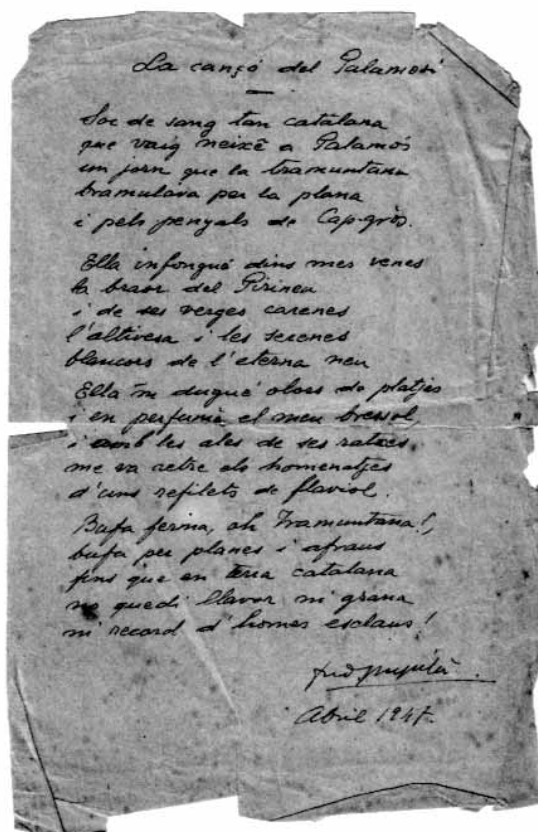 La cançó del Palamosí
Soc de sang tan catalana
que vaig neixê a Palamós
un jorn que la tramuntana
bramulava per la plana
i pels penyals de Cap-gròs.
Ella infongué dins mes venes
la braor del Pirineu
i de ses verges carenes
l'altivesa i les serenes
blancors de l'eterna neu
Ella 'm dugué olors de platjes
i en perfumà el meu bressol,
i amb les ales de ses ratxes
me va retre els homenatjes
d'uns refilets de flaviol.
Bufa ferma, oh Tramuntana!,
bufa per planes i afraus
fins que en terra catalana
no quedi llavor ni grana
ni record d'homes esclaus!
Abril 1947.